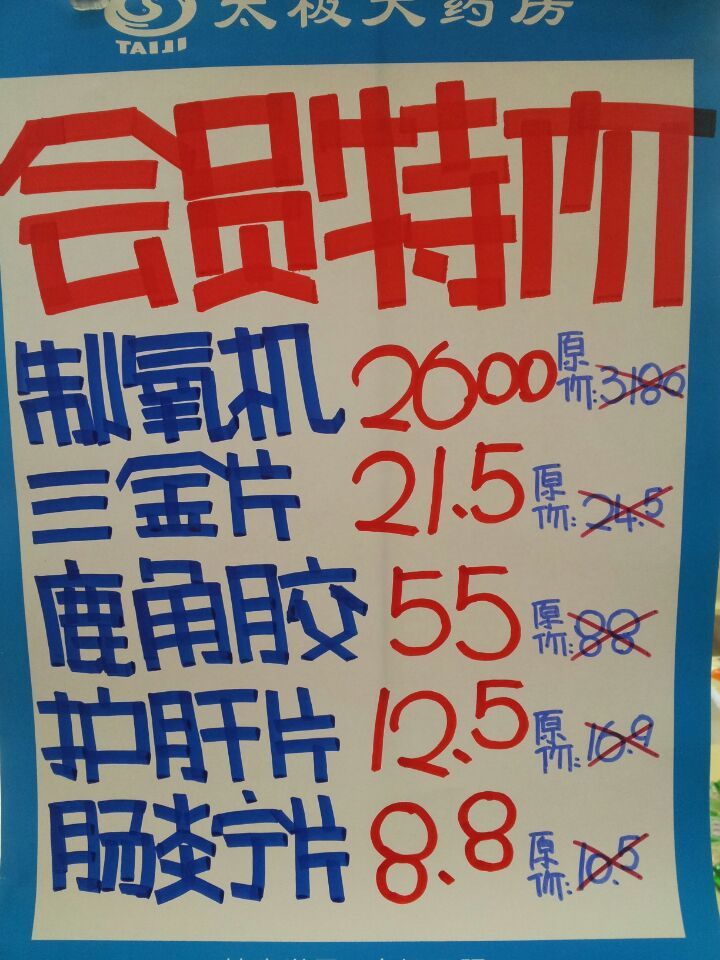 太极大药房
TAIJI
会员特价
制氧机 2600 原价:3180
三金片 21.5 原价:24.5
鹿角胶 55 原价:88
护肝片 12.5 原价:16.9
肠炎宁片 8.8 原价:10.5